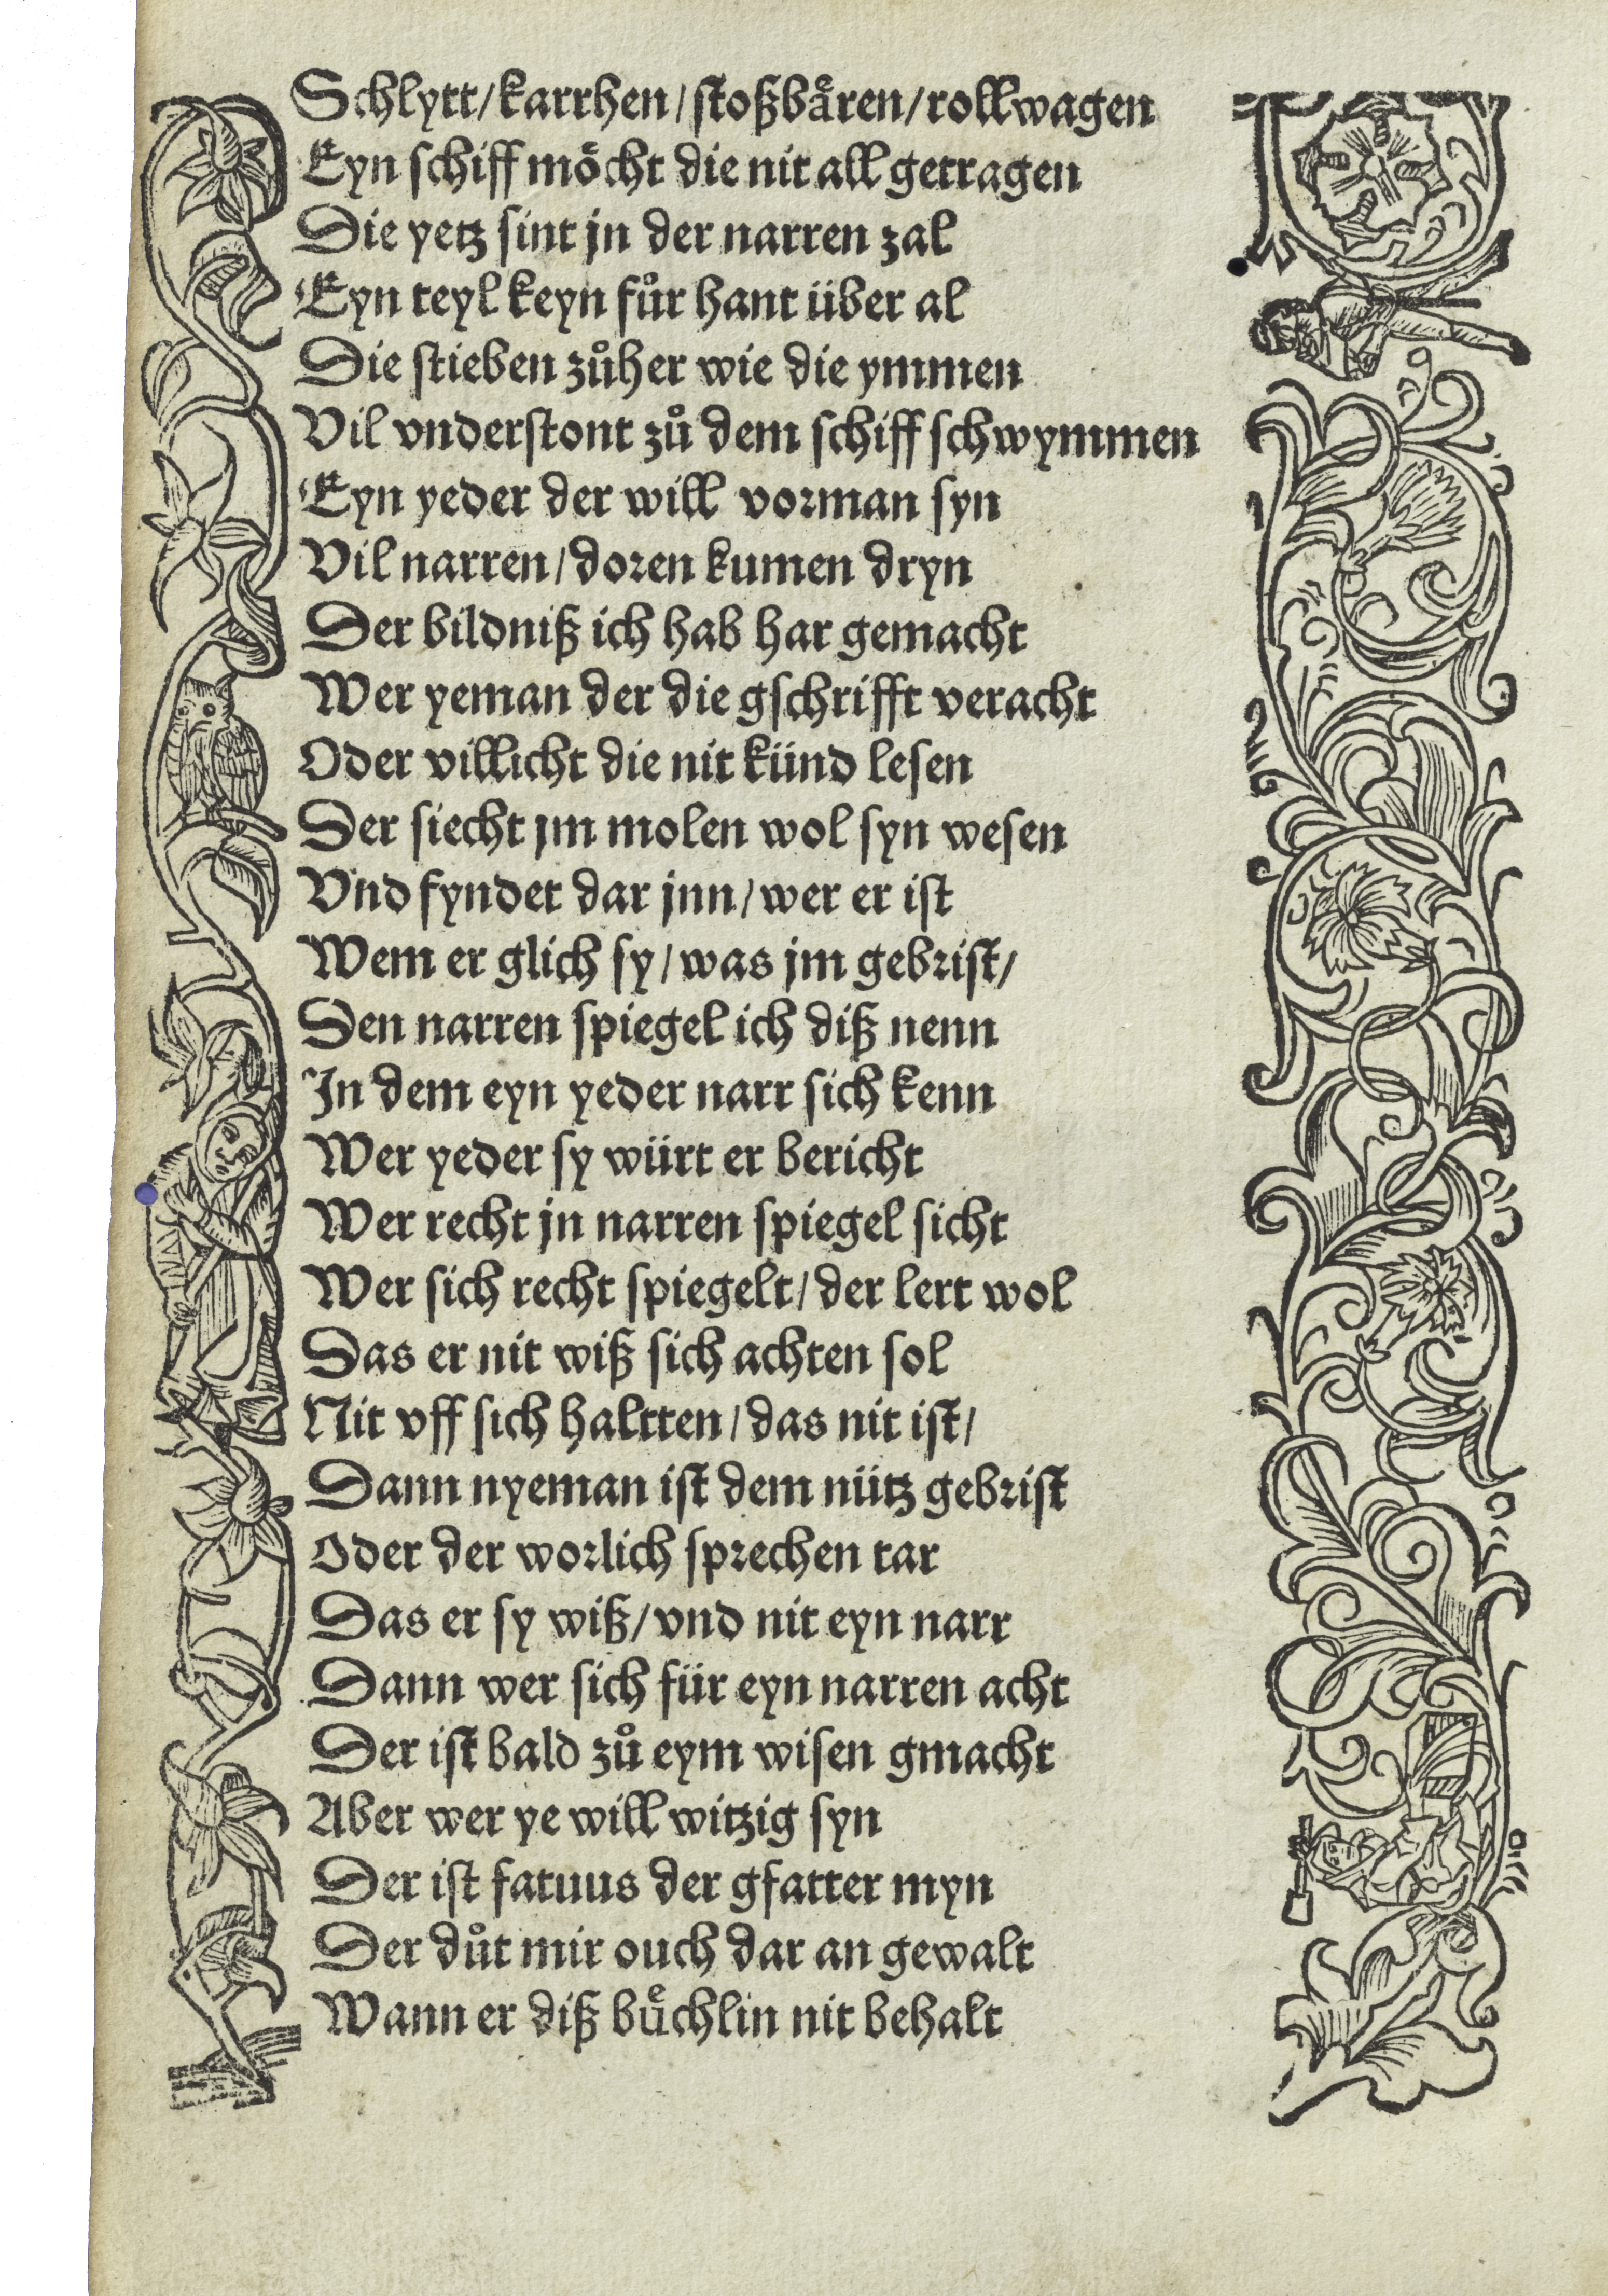 Schlytt/karrhen/stoßbaͤren/rollwagen
Eyn schiff moͤcht die nit all getragen
Die yetz sint jn der narren zal
Eyn teyl keyn fuͦr hant über al
Die stieben zuͦher wie die ymmen
Vil vnderstont zuͦ dem schiff schwymmen
Eyn yeder der will vorman syn
Vil narren/doren kumen dryn
Der bildniß ich hab har gemacht
Wer yeman der die gschrifft veracht
Oder villicht die nit künd lesen
Der siecht jm molen wol syn wesen
Vnd fyndet dar jnn/wer er ist
Wem er glich sy/was jm gebrist/
Den narren spiegel ich diß nenn
In dem eyn yeder narr sich kenn
Wer yeder sy würt er bericht
Wer recht jn narren spiegel sicht
Wer sich recht spiegelt/der lert wol
Das er nit wiß sich achten sol
Nit vff sich haltten/das nit ist/
Dann nyeman ist dem nütz gebrist
Oder der worlich sprechen tar
Das er sy wiß/vnd nit eyn narr
Dann wer sich für eyn narren acht
Der ist bald zuͦ eym wisen gmacht
Aber wer ye will witzig syn
Der ist fatuus der gfatter myn
Der duͦt mir ouch dar an gewalt
Wann er diß buͤchlin nit behalt